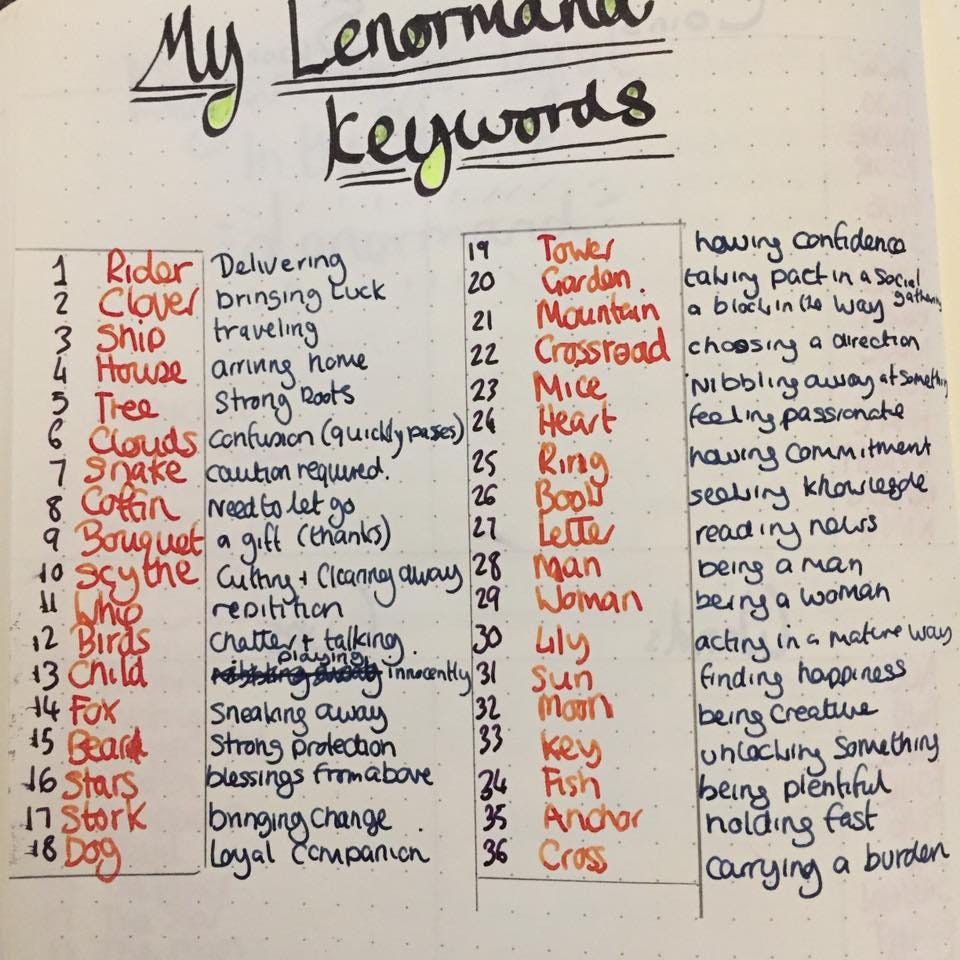 My Lenormand
Keywords
1 Rider Delivering
2 Clover bringing luck
3 Ship traveling
4 House arriving home
5 Tree Strong Roots
6 Clouds confusion (quickly passes)
7 Snake caution required.
8 Coffin Need to let go
9 Bouquet a gift (thanks)
10 Scythe Cutting + Clearing away
11 Whip repitition
12 Birds Chatter + talking
13 Child playing innocently
14 Fox Sneaking away
15 Beard Strong protection
16 Stars blessings from above
17 Stork bringing change
18 Dog Loyal Companion
19 Tower having confidence
20 Garden. taking part in a social gathering
21 Mountain a block in the way
22 Crossroad choosing a direction
23 Mice Nibbling away at something
24 Heart feeling passionate
25 Ring having commitment
26 Book seeking knowlegde
27 Letter reading news
28 Man being a man
29 Woman being a woman
30 Lily acting in a mature way
31 Sun finding happiness
32 Moon being Creative
33 Key unlocking something
34 Fish being plentiful
35 Anchor holding fast
36 Cross carrying a burden